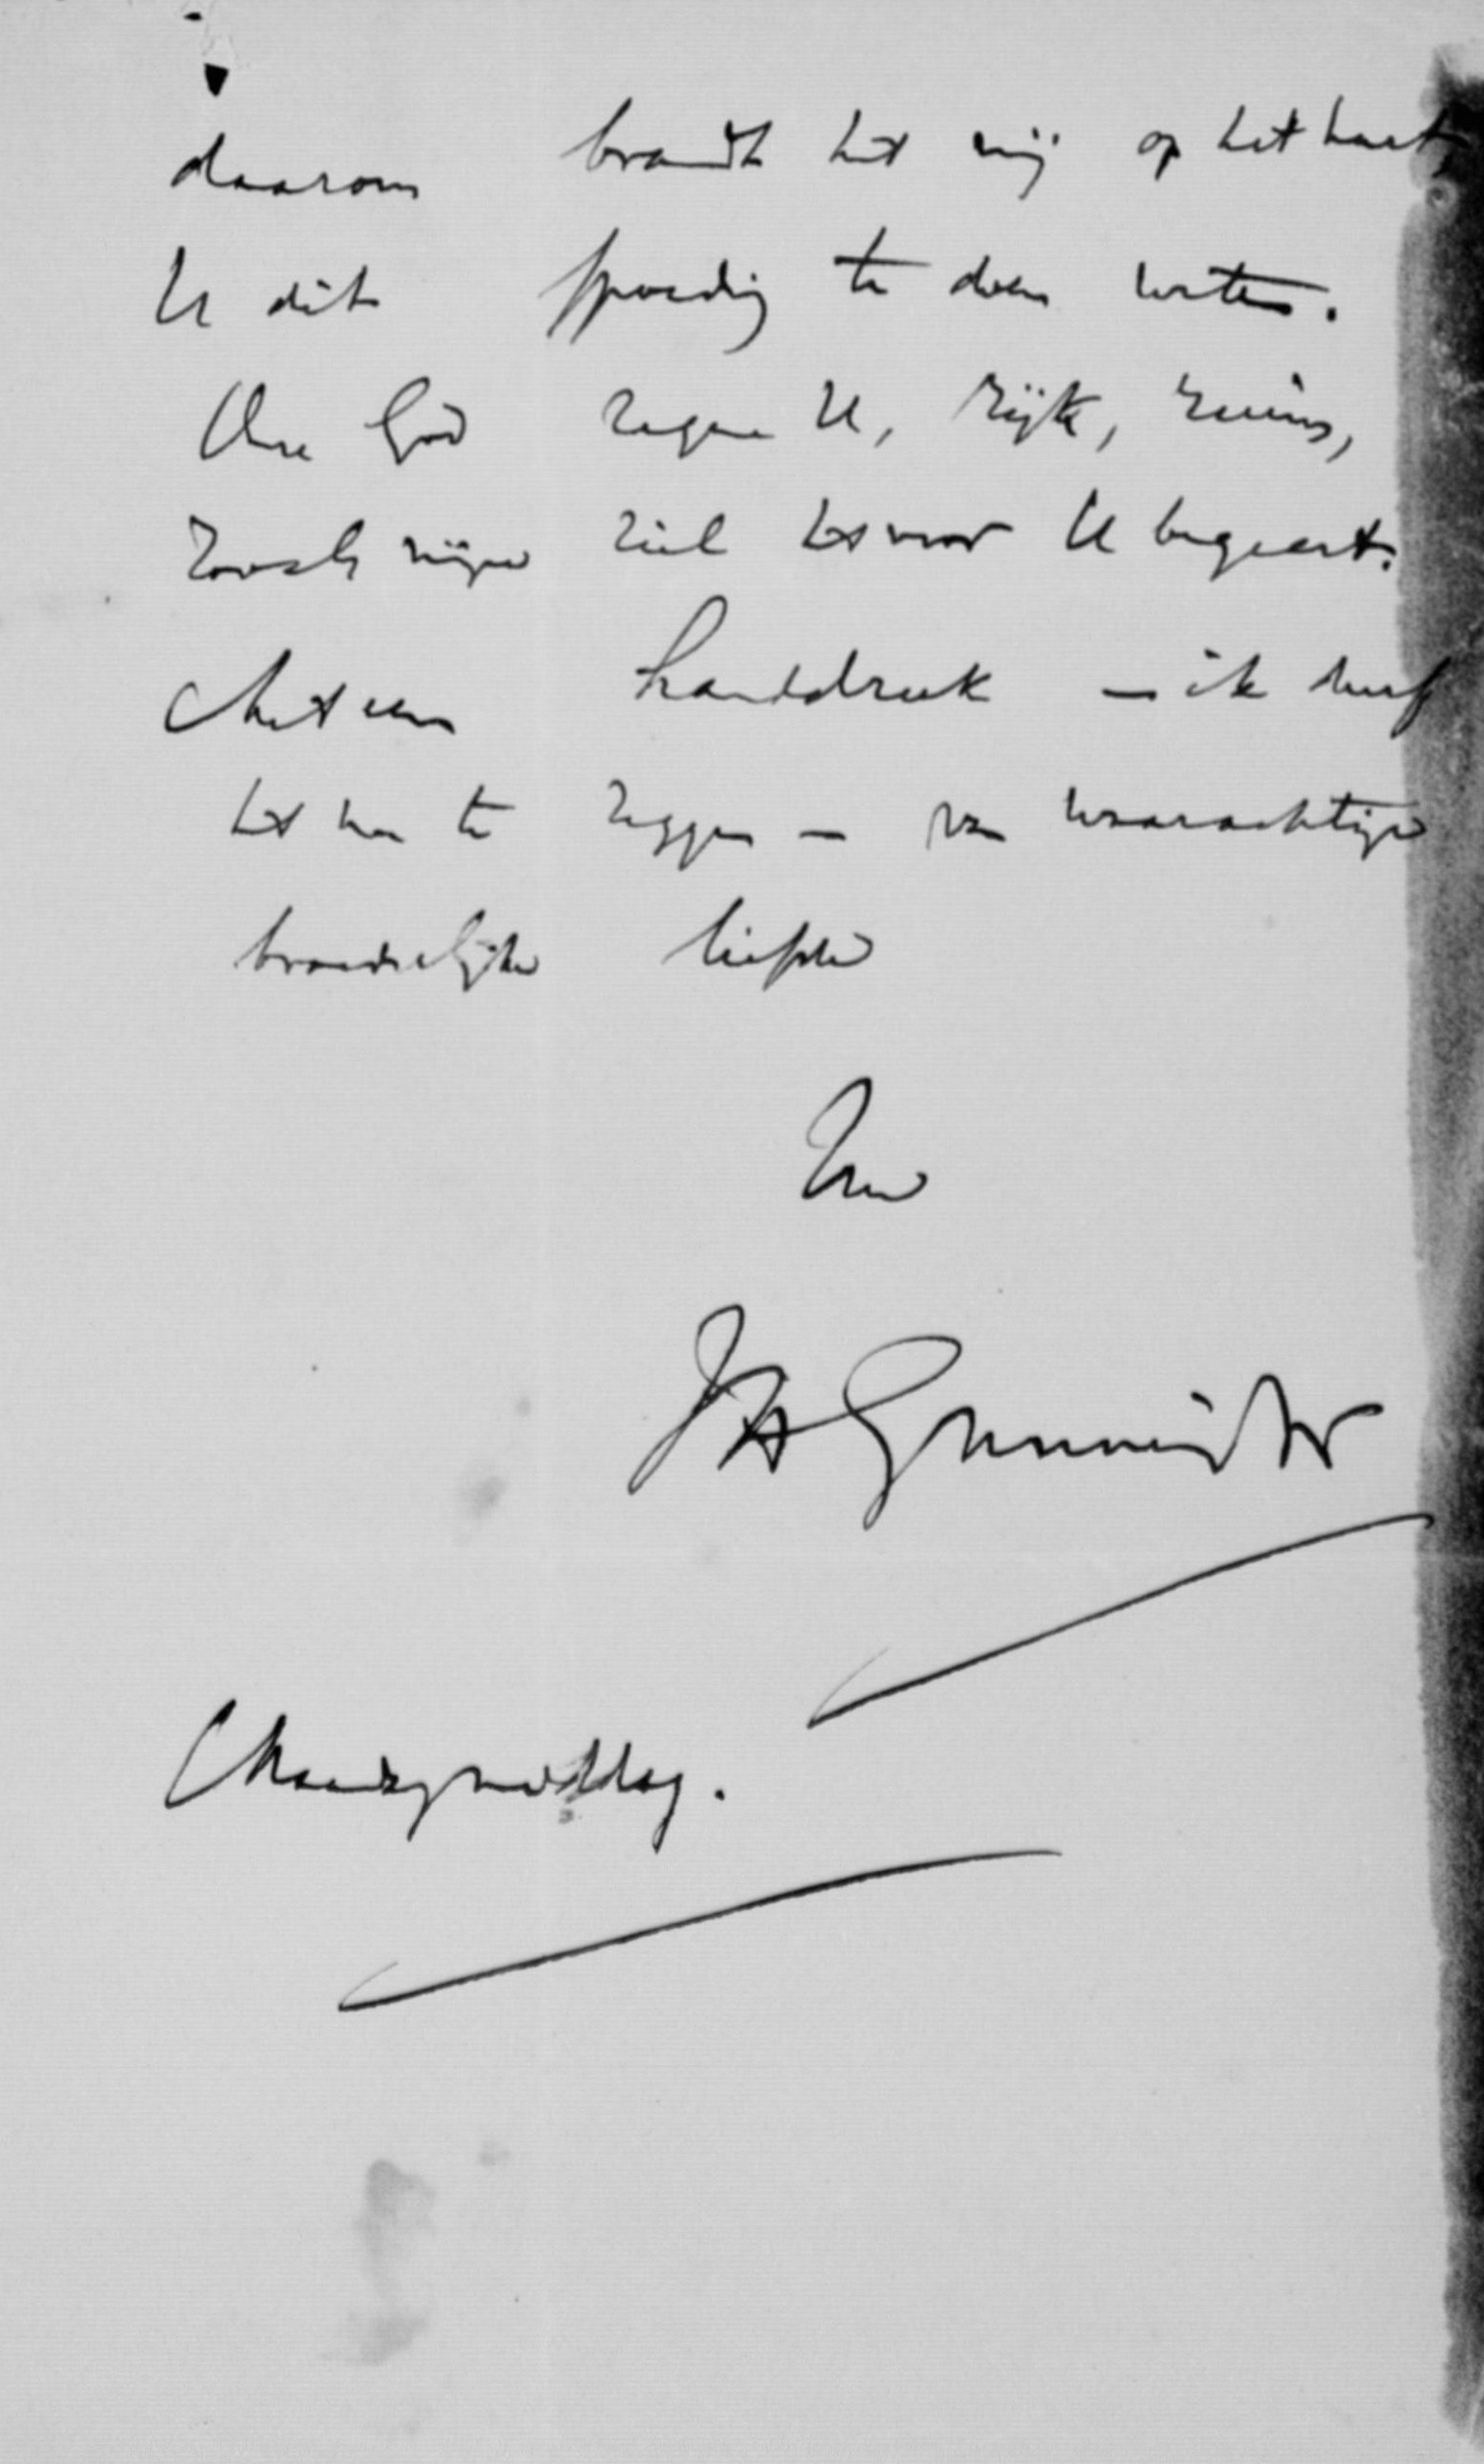 daarom brandt het mij op het hart,
U dit spoedig te doen weten.
Onze God zegene U, rijk, ruim,
zooals mijne ziel het voor U begeert.
Met een handdruk — ik durf
het nu te zeggen — van waarachtige
broederlijke liefde
Uw
JH Gunning JHr
Maandagmiddag.